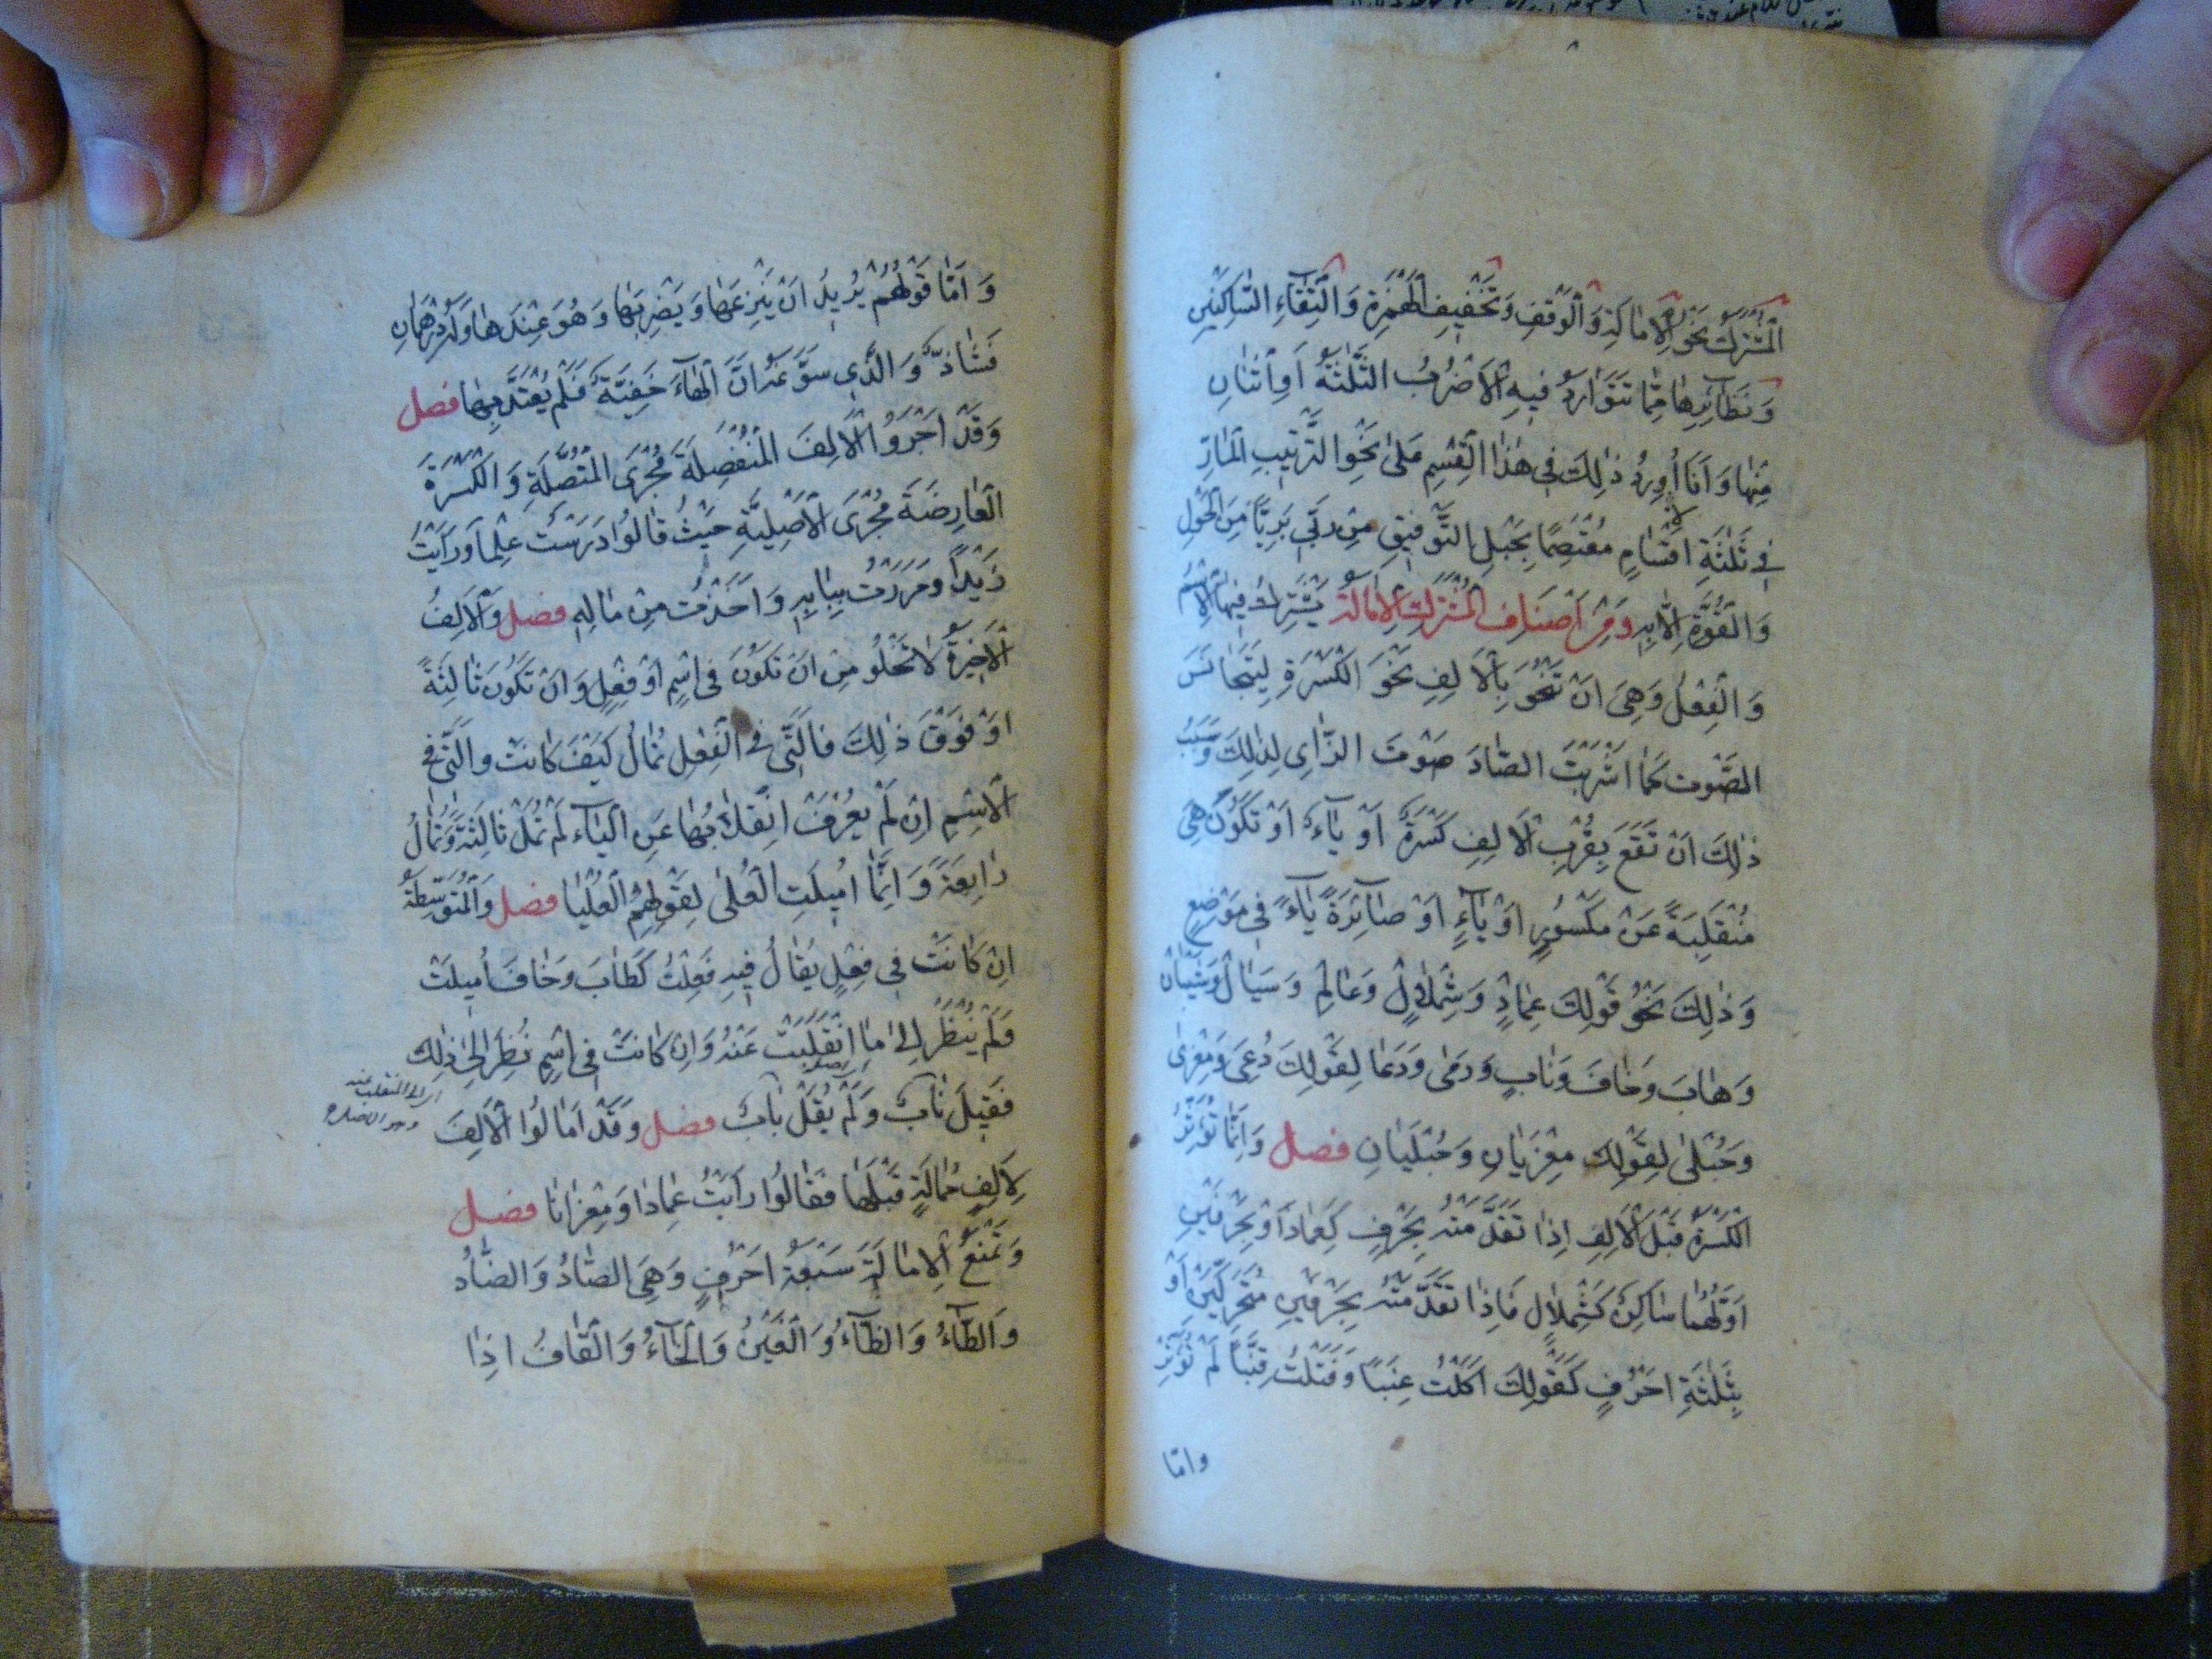 المشترك نحو الامالة والوقف وتخفيف الهمزة والتقاء الساكنين
ونظائرها مما تتوارد فيه الاضرب الثلثة او اثنان
منها وانا اورد ذلك في هذا القسم على نحو الترتيب المار
في ثلثة اقسام معتصما بحبل التوفيق من ربي بريا من الحول
والقوة الا به ومن اصناف المشترك الامالة يشترك فيها الاسم
والفعل وهي ان تنحو بالالف نحو الكسرة ليتجانس
الصوت كما اشربت الصاد صوت الزاي لذلك وسبب
ذلك ان تقع بقرب الالف كسرة او ياء او تكون هي
منقلبة عن مكسور او ياء او صائرة ياء في موضع
وذلك نحو قولك عماد وشملال وعالم وسيال وشيبان
وهاب وخاف وناب ورمى ودعا لقولك دعي ومعزى
وحبلى لقولك معزيان وحبليان فصل وانما تؤثر
الكسرة قبل الالف اذا تقدمته بحرف كعماد او بحرفين
اولهما ساكن كشملال فاذا تقدمته بحرفين متحركين او
بثلثة احرف كقولك اكلت عنبا وفتلت قنبا لم تؤثر
واما
واما قولهم يريد ان ينزعها ويضربها وهو عندها وله درهمان
فشاذ والذي سوغه ان الهاء خفية فلم يعتد بها فصل
وقد اجروا الالف المنفصلة مجرى المتصلة والكسرة
العارضة مجرى الاصلية حيث قالوا درست علما ورايت
زيدا ومررت ببابه واخذت من ماله فصل والالف
الاخيرة لا تخلو من ان تكون في اسم او فعل وان تكون ثالثة
او فوق ذلك فالتي في الفعل تمال كيف كانت والتي في
الاسم ان لم يعرف انقلابها عن الياء لم تمل ثالثة وتمال
رابعة وانما اميلت العلى لقولهم العليا فصل والمتوسطة
ان كانت في فعل يقال فيه فعلت كطاب وخاف اميلت
ولم ينظر الى ما انقلبت عنه وان كانت في اسم نظر الى ذلك
فقيل ناب ولم يقل باب فصل وقد امالوا الالف
لالف ممالة قبلها فقالوا رايت عمادا ومعزانا فصل
وتمنع الامالة سبعة احرف وهي الصاد والضاد
والطاء والظاء والغين والخاء والقاف اذا